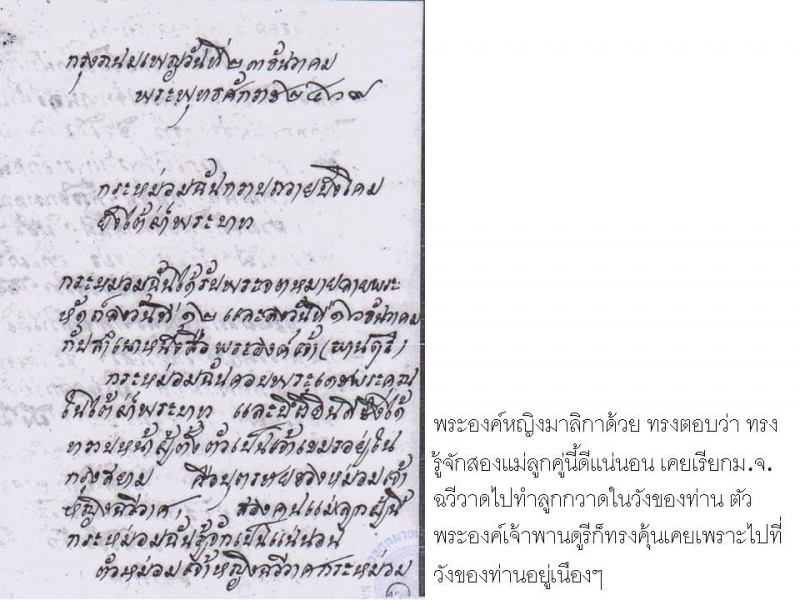 กรุงภนมเพญวันที่ ๒๓ ธันวาคม
พระพุทธศักราช ๒๔๖๙
กระหม่อมฉันกราบถวายบังคม
ยังใต้ฝ่าพระบาท
กระหม่อมฉันได้รับพระจดหมายลายพระ
หัดถ์ลงวันที่ ๑๒ และลงวันที่ ๑๖ ธันวาคม
กับสำเนาหนังสือพระองค์เจ้า (พานดุรี)
กระหม่อมฉันขอบพระเดชพระคุณ
ในใต้ฝ่าพระบาท และมีความยินดีซึ่งได้
ทราบหน้าผู้ตั้งตัวเปนเจ้าเขมรอยู่ใน
กรุงสยาม คือบุตรชายของหม่อมเจ้า
หญิงฉวีวาด, สองคนแม่ลูกผู้นี้
กระหม่อมฉันรู้จักเปนแน่นอน
ตัวหม่อมเจ้าหญิงฉวีวาดกระหม่อม
พระองค์หญิงมาลิกาด้วย ทรงตอบว่า ทรง
รู้จักสองแม่ลูกคู่นี้ดีแน่นอน เคยเรียกม.จ.
ฉวีวาดไปทำลูกกวาดในวังของท่าน ตัว
พระองค์เจ้าพานดูรีก็ทรงคุ้นเคยเพราะไปที่
วังของท่านอยู่เนืองๆ